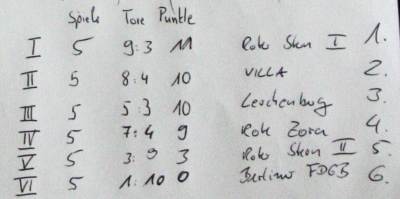 Spiele Tore Punkte
I 5 9:3 11 Roter Stern I 1.
II 5 8:4 10 VILLA 2.
III 5 5:3 10 Leuchenburg 3.
IV 5 7:4 9 Rote Zora 4.
V 5 3:9 3 Roter Stern II 5.
VI 5 1:10 0 Berliner FDGB 6.